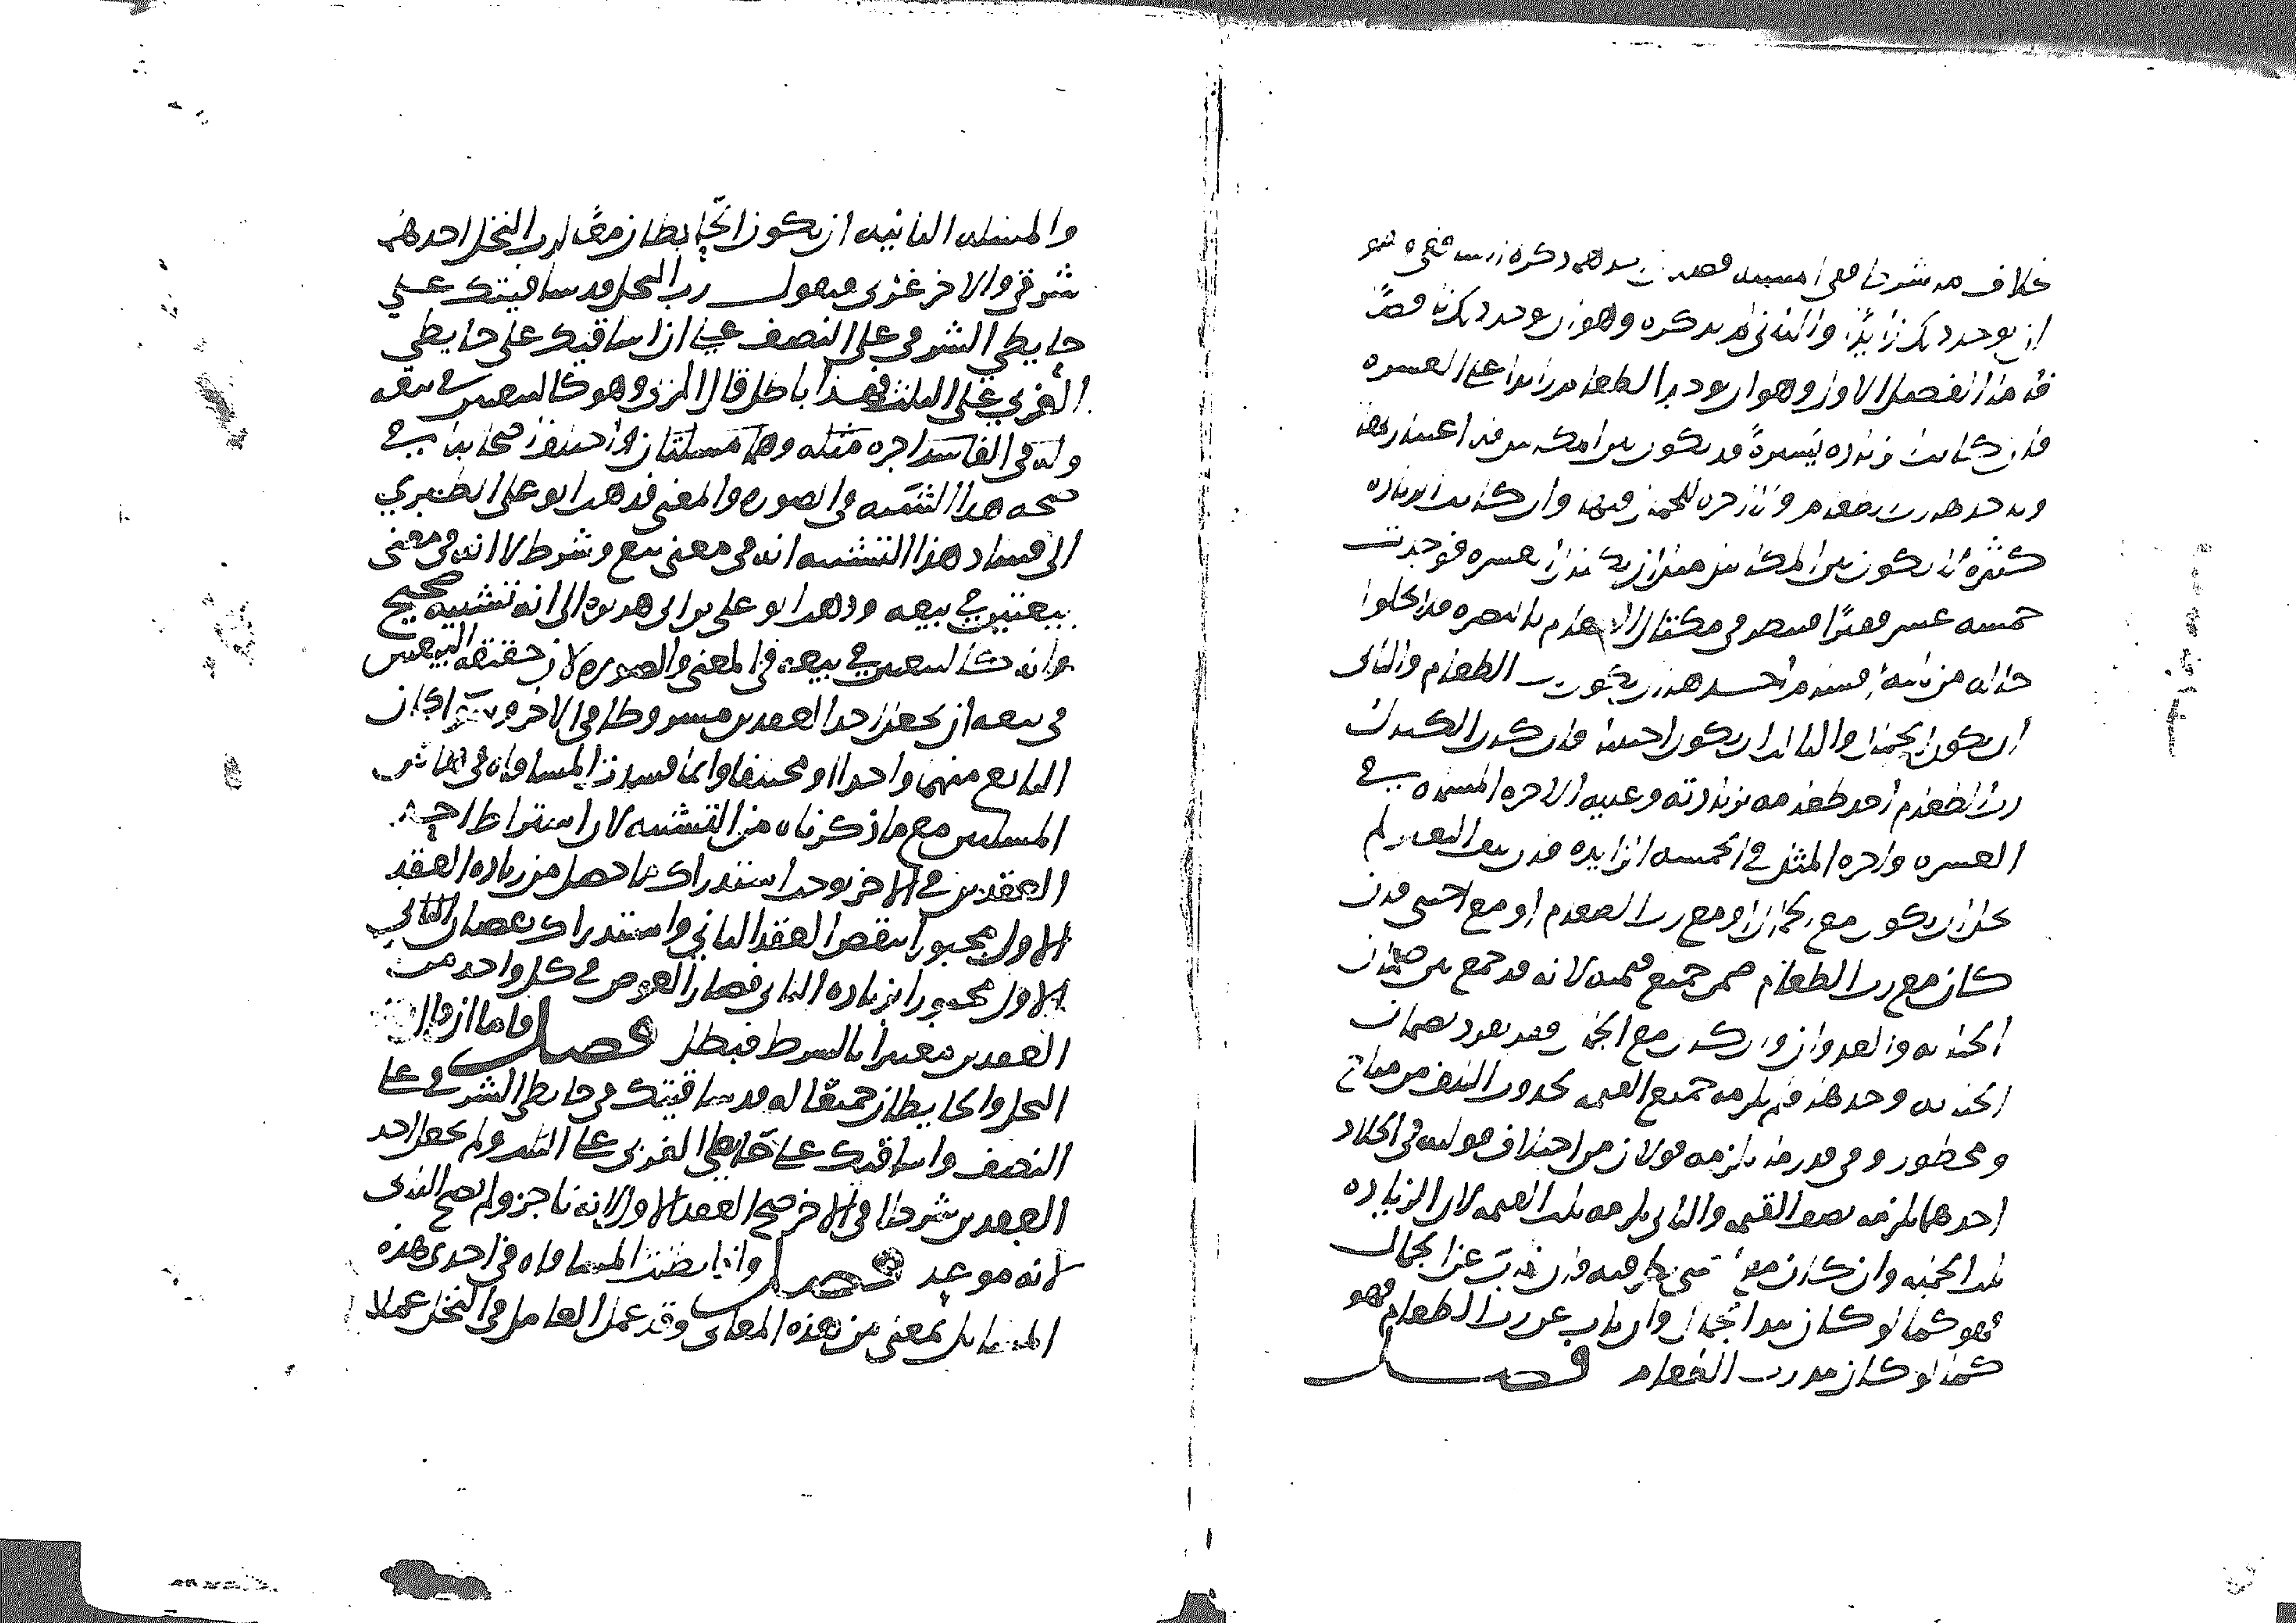 خلاف ما شرطا فعلى قسمين ذكره الشافعي وهو
ان يوجد زايدا والثاني لم يذكره وهو ان يوجد ناقصا
فاما الفصل الاول وهو ان يوجد الطعام زايدا على العشره
فان كانت الزياده يسيرة قد يكون بين المكاييل
وياخذها رب الطعام ولا اجره للحمال فيها وان كانت الزياده
كثيره لا يكون بين المكاييل مثل ان يكتال عشره فوجدت
خمسه عشر قفيزا فينظر في مكتال الطعام بالبصره فلا يخلوا
حاله من ثلثه اقسام احدها ان يكون رب الطعام والثاني
ان يكون الجمال والثالث ان يكون اجنبيا فان كان الكيال
رب الطعام اخذ طعامه بزيادته وعليه الاجره المسماه في
العشره واجره المثل في الخمسه الزايده فان تلف الطعام لم
يخل ان يكون مع الجمال او مع رب الطعام او مع اجنبي فان
كان مع رب الطعام ضمن جميع قيمته لانه قد جمع بين ضمان
الجنايه والعدوان وان كان مع الجمال فقد تفرد بضمان
الجنايه وحدها فلم يلزمه جميع القيمه لحدوث التلف من مباح
ومحظور وفي قدر ما يلزمه قولان من اختلاف قوليه في الجلاد
احدهما يلزمه نصف القيمه والثاني يلزمه ثلث القيمه لان الزياده
ثلث الجمله وان كان مع اجنبي فان ناب عن الجمال
فهو كما لو كان بيد الجمال وان ناب عن رب الطعام فهو
كما لو كان بيد رب الطعام فصل
والمسله الثانيه ان يكون الحايطان معا لرب النخل احدهما
شرقي والاخر غربي فيقول رب النخل قد ساقيتك على
حايطي الشرقي على النصف على ان اساقيك على حايطي
الغربي على الثلث فهذا باطل قال المزني وهو كالبيعتين في بيعه
وله في الفاسد اجره مثله وهما مسلتان اختلف اصحابنا في
صحه هذا التشبيه في الصوره والمعنى فذهب ابو على الطبري
الى فساد هذا التشبيه انه في معنى بيع وشرط لا انه في معنى
بيعتين في بيعه وذهب ابو على بن ابي هريره الى انه تشبيه صحيح
وانه كالبيعتين في بيعه في المعنى والصوره لان حقيقه البيعتين
في بيعه ان يجعل احد العقدين مشروطا في الاخر وسوا كان
البايع منهما واحدا او مختلفا وانما فسدت المساقاه في هاتين
المسلتين مع ما ذكرناه من التشبيه لان اشتراط احد
العقدين في الاخر يوجد استدراك ما حصل من زياده العقد
الاول مجبورا بنقص العقد الثاني واستدراك نقصان الثاني
الاول مجبورا بزياده الثاني فصار العوض في كل واحد من
العقدين معتبرا بالشرط فبطل فصل فاما ان قال
النخل والحايطان جميعا له قد ساقيتك في حايطي الشرقي على
النصف واساقيك على حايطي الغربي على الثلث ولم يجعل احد
العقدين شرطا في الاخر صح العقد الاول لانه ناجز ولم يصح الثاني
لانه موعد فصل واذا بطلت المساقاه في احدى هذه
المسايل بمعنى من هذه المعاني وقد عمل العامل في النخل عملا